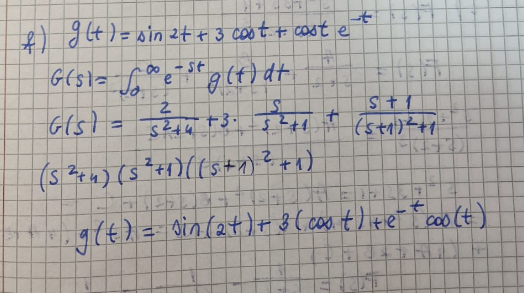 f) g(t) = sin 2t + 3 cost + cost e^-t
G(s) = ∫₀^∞ e^-st g(t) dt
G(s) = 2/(s²+4) + 3 · s/(s²+1) + (s+1)/((s+1)²+1)
(s²+4)(s²+1)((s+1)²+1)
g(t) = sin(2t) + 3(cos t) + e^-t cos(t)